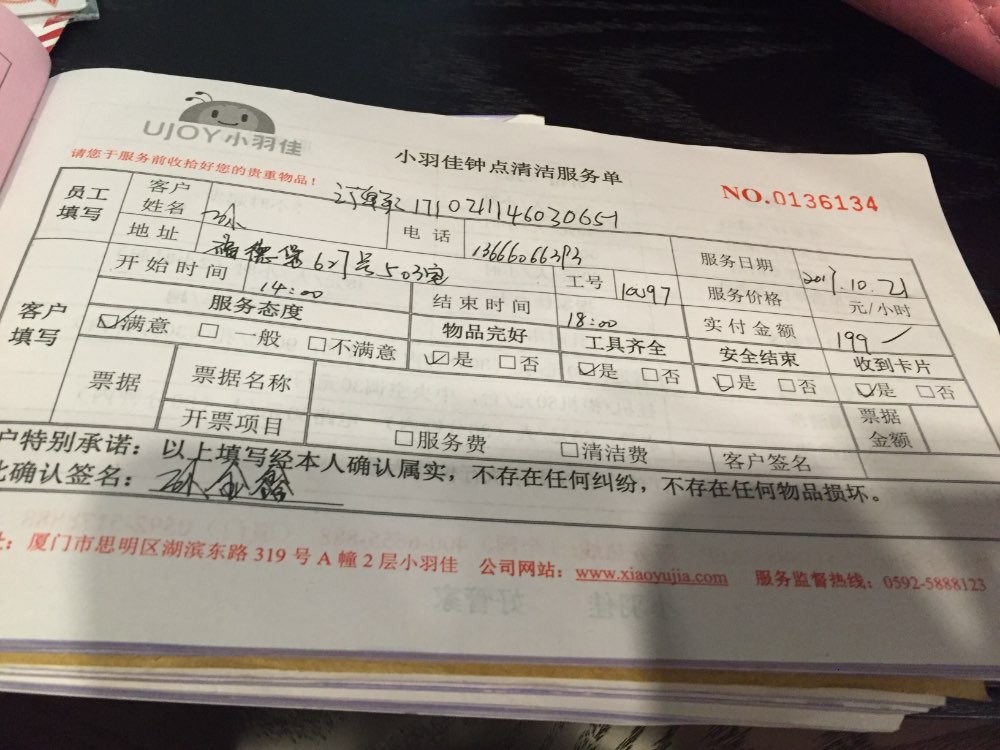 UJOY小羽佳
小羽佳钟点清洁服务单
请您于服务前收拾好您的贵重物品！
NO.0136134
员工填写 客户姓名 孙 订单号 电话 服务日期 2017.10.21
地址 627号503室
开始时间 14:00 结束时间 18:00 工号 服务价格 元/小时
实付金额 199
客户填写 服务态度 物品完好 工具齐全 安全结束 收到卡片
☑满意 □一般 □不满意 ☑是 □否 ☑是 □否 ☑是 □否 ☑是 □否
票据 票据名称 票据金额
开票项目 □服务费 □清洁费 客户签名
户特别承诺：以上填写经本人确认属实，不存在任何纠纷，不存在任何物品损坏。
此确认签名：孙
址：厦门市思明区湖滨东路 319 号 A 幢 2 层小羽佳 公司网站：www.xiaoyujia.com 服务监督热线：0592-5888123